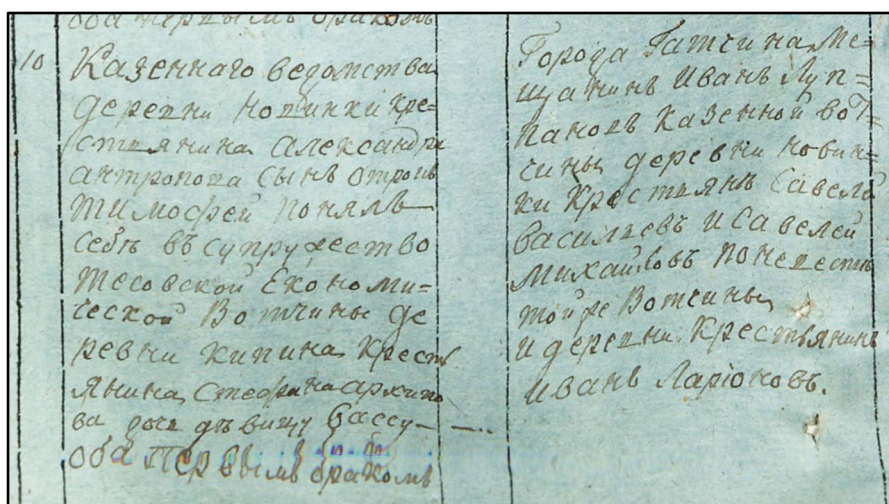 оба первымъ бракомъ
10
Казеннаго ведомства
деревни новинки кре-
стьянина александра
антропова сынъ отрокъ
тимофей понялъ
себѣ въ супружество
тесовской Економи=
ческой Вотчины де
ревни кипина кресть
янина Стефана архипо
ва дочь дѣвицу Вассу
оба Первымъ бракомъ
Города Гатчина Ме=
щанинъ Иванъ Луп=
пановъ казенной вот=
чины деревни новин=
ки Крестьянъ Савелей
Васильевъ и Савелей
Михайловъ по невесте
тойже Вотчины
и деревни Крестьянинъ
иванъ Ларіоновъ.